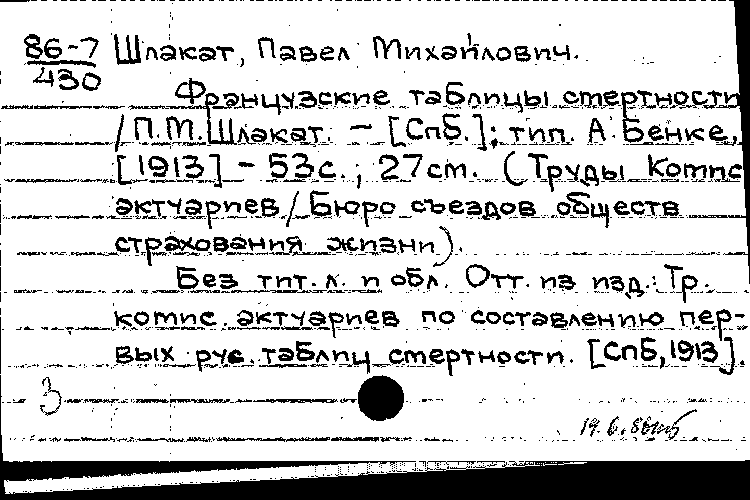 86-7 Шлакат, Павел Михайлович.
430
Французские таблицы смертности
/ П.М. Шлакат. - [Спб.]; тип. А. Бенке,
[1913] - 53с.; 27см. (Труды Комис
актуариев / Бюро съездов обществ
страхования жизни).
Без тит. л. и обл. Отт. из изд.: Тр.
комис. актуариев по составлению пер-
вых рус. таблиц смертности. [Спб, 1913].
3
19.6.86